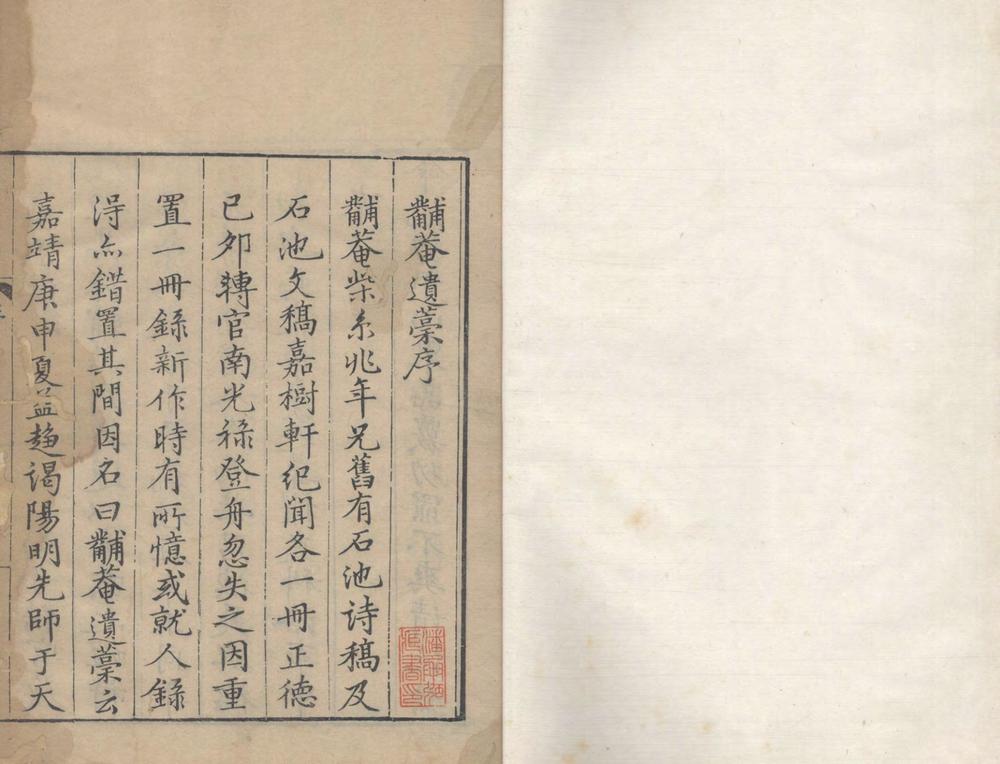 黼菴遺藁序
黼菴柴糸兆年兄舊有石池诗稿及
石池文稿嘉樹軒纪闻各一冊正徳
已夘轉官南光禄登舟忽失之因重
置一冊錄新作時有所憶或就人錄
淂亦錯置其間因名曰黼菴遺藁云
嘉靖庚申夏益趋谒陽明先師于天